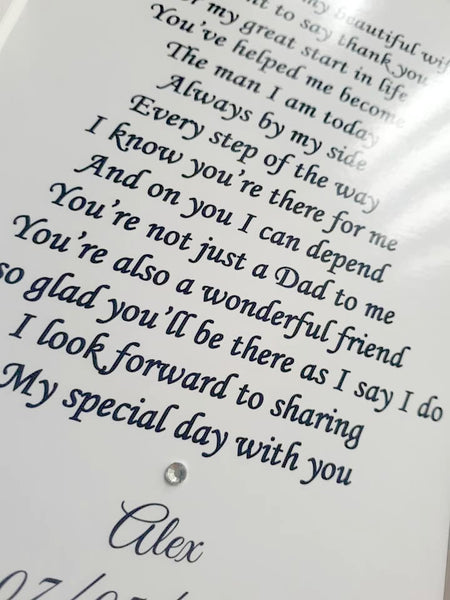 my beautiful
to say thank you
my great start in life
You've helped me become
The man I am today
Always by my side
Every step of the way
I know you're there for me
And on you I can depend
You're not just a Dad to me
You're also a wonderful friend
so glad you'll be there as I say I do
I look forward to sharing
My special day with you
Alex